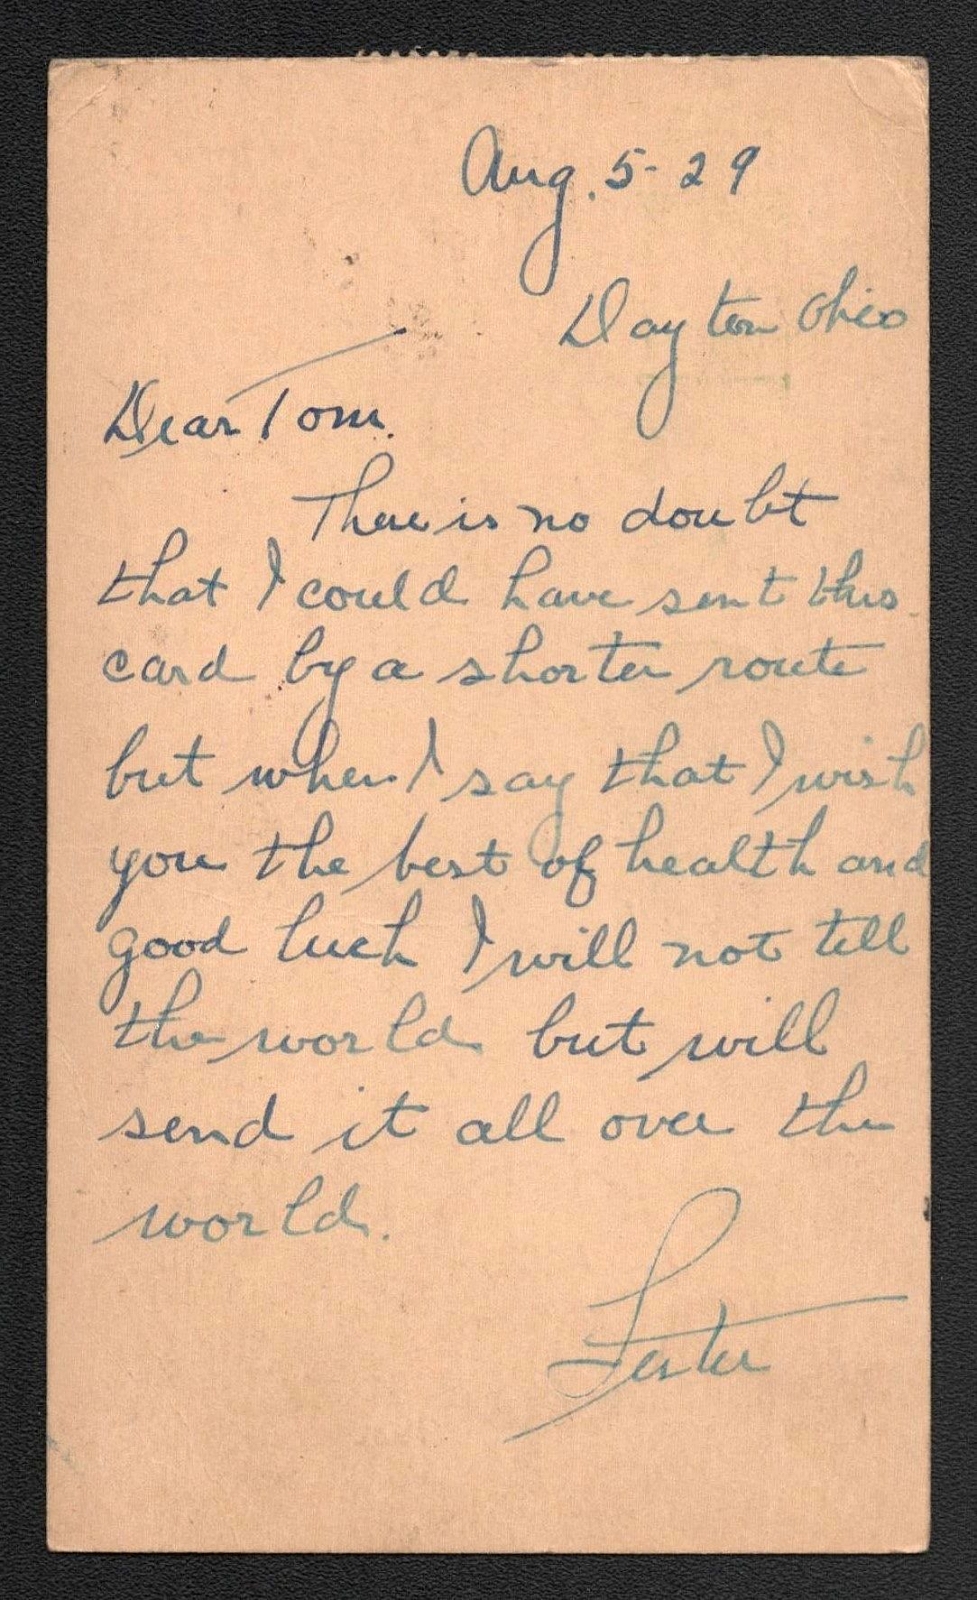 Aug. 5 - 29
Dayton Ohio
Dear Tom.
There is no doubt
that I could have sent this
card by a shorter route
but when I say that I wish
you the best of health and
good luck I will not tell
the world but will
send it all over the
world.
Lester